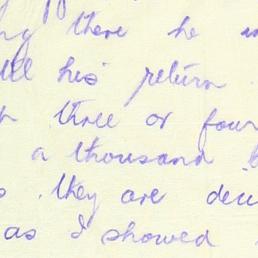 there he
his return
three or four
a thousand
they are
as I showed